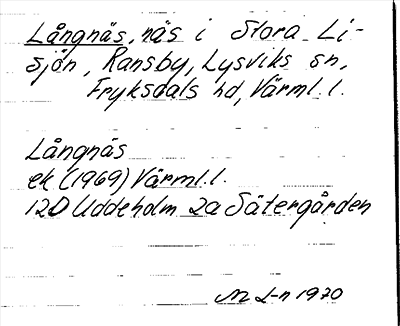 Långnäs, näs i Stora Li-
sjön, Ransby, Lysviks sn,
Fryksdals hd, Värml. l.
Långnäs
ek (1969) Värml. l.
12D Uddeholm 2a Sätergården
L-n 1970